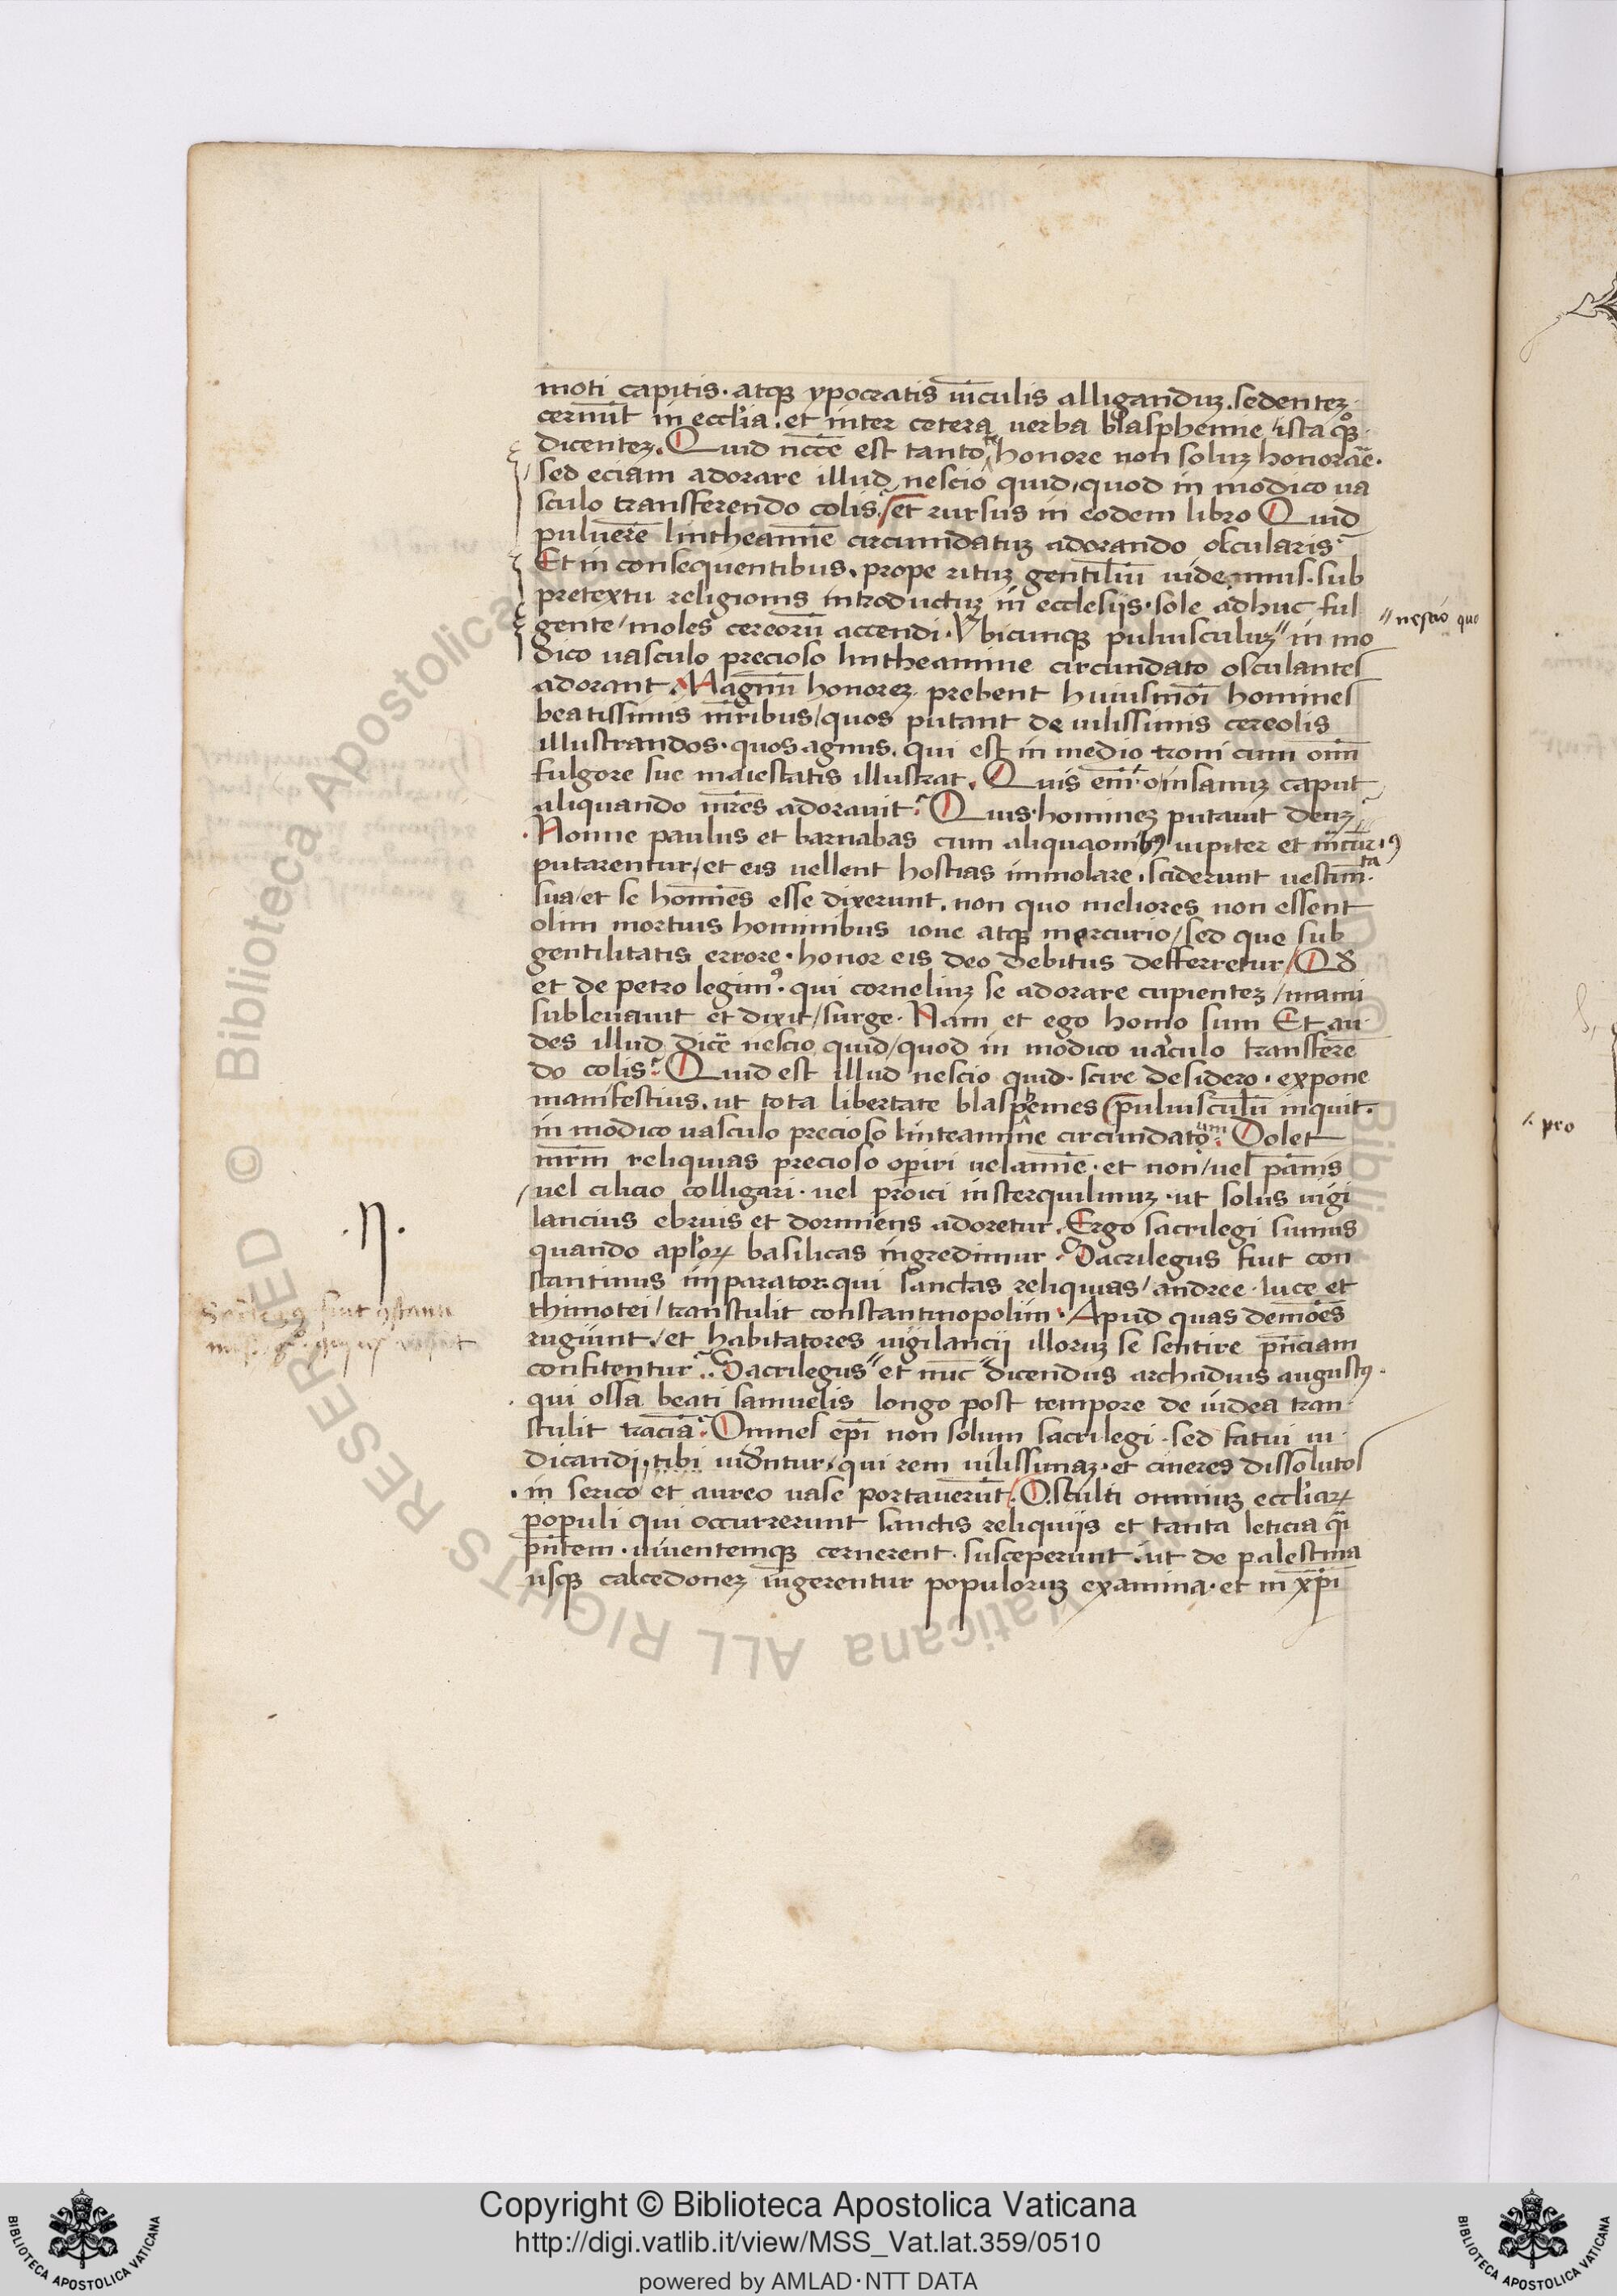 moti capitis· atqꝫ ypocratis uīculis alligandūꝫ· sedentēꝫ·
cernūt in eccl'ia· et inter cetera uerba blasphemie /ista qͦqꝫ·
dicentēꝫ· Quid nc̄c̄e est tanto te honore non soluꝫ honorāe·
/sed eciam adorare illud nescio quid, quod in modico ua
sculo transferendo colis? et rursus in eodem libro Quid
puluerē linthēamīe circumdatuꝫ adorando oscularis?
Et in consequentibus· prope rituꝫ gentiliū uidemus· sub
pretextu religionis introductuꝫ in ecclesijs· sole adhuc ful
gente/ moles cereorū accendi· Vbicunqꝫ puluisculuꝫ" in mo
"nescio quo
dico uasculo precioso lintheamine circundato osculantes
adorant· Magnū honoreꝫ prebent huiusmōi homines
beatissimis mr̄ibus/ quos putant de uilissimis cereolis
illustrandos· quos agnus· qui est in medio troni cum om̄i
fulgore sue maiestatis illustrat· Quis eni̅· o/ insanuꝫ caput
aliquando mr̄es adorauit? Quis· homineꝫ putauit deuꝫ?
·Nonne paulus et barnabas cum a liquaonibꝰ iupiter et m̄curiꝰ
putarentur/ et eis uellent hostias immolare· sciderunt uestim̄ta·
sua/ et se hoīnes esse dixerunt· non quo meliores non essent
olim mortuis hominibus ioue atqꝫ mercurio/ sed quo sub
gentilitatis errore· honor eis deo debitus defferretur/ Qd
et de petro legimꝰ· qui corneliuꝫ se adorare cupienteꝫ /manu
subleuauit et dixit/ surge· Nam et ego homo sum Et au·
des illud dic̄e nescio quid/ quod in modico uasculo transferē
do colis? Quid est illud nescio quid· scire desidero· expone
manifestius· ut tota libertate blasphemes (puluisculū inquit·
in modico uasculo precioso linteamine circundatoum· Dolet
mr̄m reliquias precioso operiri uelamīe· et non/ uel pānis
/uel cilicio colligari· uel proici in sterquilinuꝫ· ut solus uigi
lancius ebrius et dormiens adoretur· Ergo sacrilegi sumus
quando apl'oꝝ basilicas ingredimur· Sacrilegus fuit con
stantinus imparator· qui sanctas reliquias/ andree· luce et
thimotei/ transtulit constantinopolim· Apud quas demōes
rugiunt/ et habitatores uigilancij illoruꝫ se sentire pn̄ciam
confitentur? Sacrilegus" et nūc dicendus archadius augustꝰ·
·qui ossa beati samuelis longo post tempore de iudea tran·
stulit traciā? Omnes ep̄i non solum sacrilegi· sed fatui iu·
dicandi, tibi uidn̄tur· qui rem uilissimaꝫ· et cineres dissolutos
·in serico et aureo uase portauerūt· O stulti omniuꝫ eccl'iaꝝ
populi qui occurrerunt sanctis reliquijs et tanta leticia q̄i
pn̄tem· uiuentemqꝫ cernerent· susceperunt· ut de palestina
usqꝫ calcedoneꝫ iungerentur populoruꝫ examina· et in xp̄i
·N·
/· pro
Copyright © Biblioteca Apostolica Vaticana
http://digi.vatlib.it/view/MSS_Vat.lat.359/0510
powered by AMLAD·NTT DATA
BIBLIOTECA APOSTOLICA VATICANA
BIBLIOTECA APOSTOLICA VATICANA
© Biblioteca Apostolica Vaticana ALL RIGHTS RESERVED